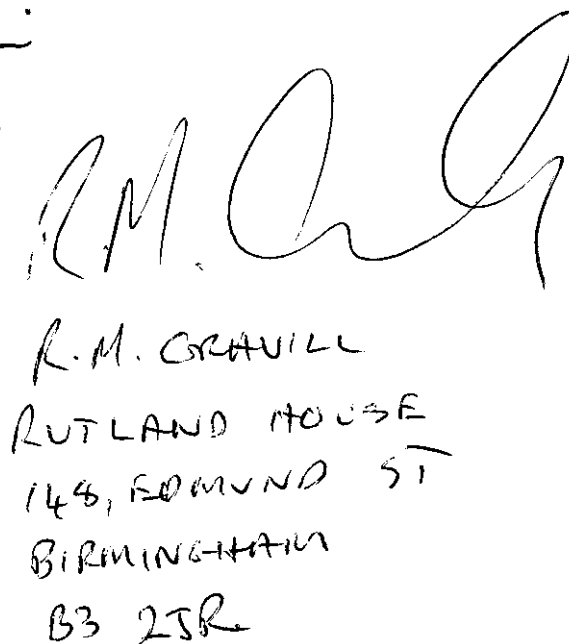 R.M.
R.M. GRAVILL
RUTLAND HOUSE
148, EDMUND ST
BIRMINGHAM
B3 2JR